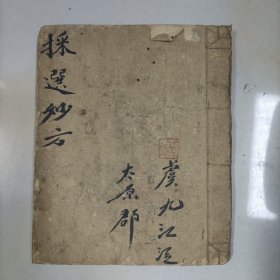 採選妙方
虞九江
太原郡